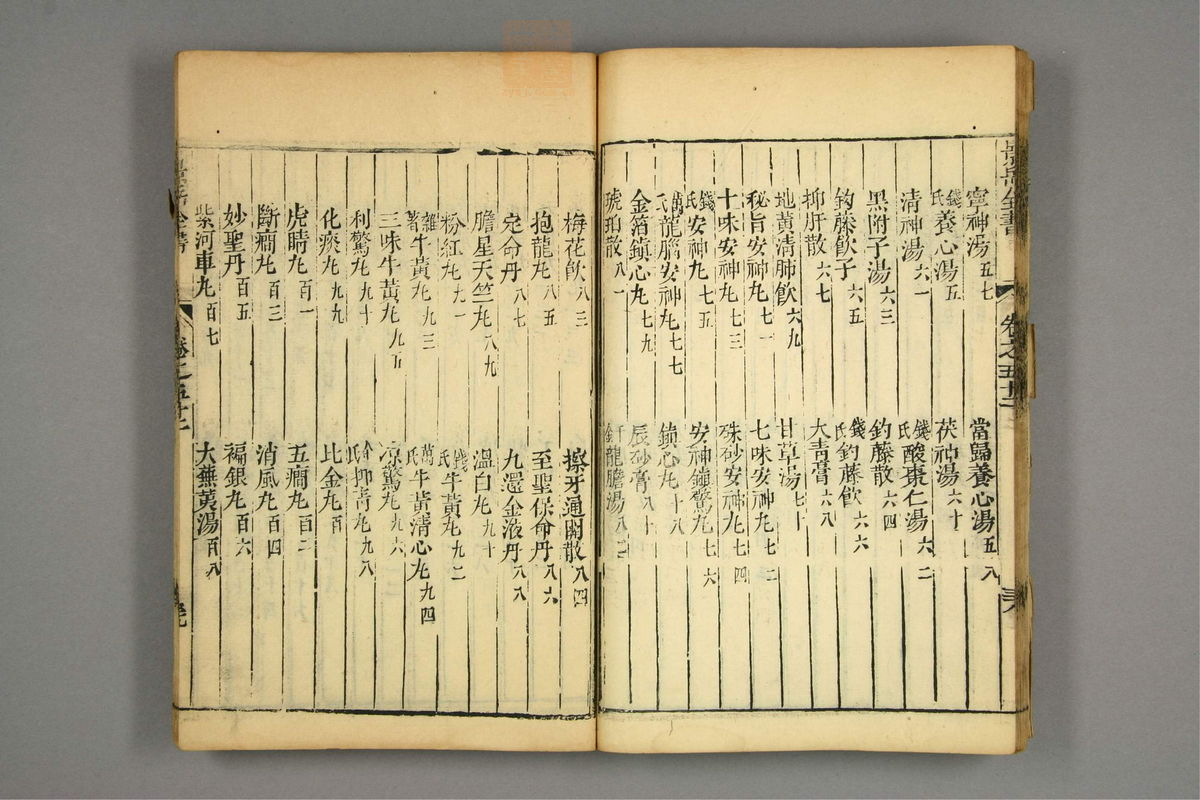 景岳全書 卷之五十二 三八
寧神湯五七 當歸養心湯五八
錢氏養心湯五 茯神湯六十
清神湯六一 錢氏酸棗仁湯六二
黑附子湯六三 釣藤散六四
釣藤飲子六五 錢氏釣藤飲六六
抑肝散六七 大青膏六八
地黃清肺飲六九 甘草湯七十
秘旨安神丸七一 七味安神丸七二
十味安神丸七三 硃砂安神丸七四
錢氏安神丸七五 安神鎮驚丸七六
萬氏龍腦安神丸七七 鎮心丸十八
金箔鎮心丸七九 辰砂膏八十
琥珀散八一 龍膽湯八二
梅花飲八三 擦牙通關散八四
抱龍丸八五 至聖保命丹八六
定命丹八七 九還金液丹八八
膽星天竺丸八九 溫白丸九十
粉紅丸九一 錢氏牛黃丸九二
雜著牛黃丸九三 萬氏牛黃清心丸九四
三味牛黃丸九五 涼驚丸九六
利驚丸九十 抑青丸九八
化痰丸九九 比金丸百
虎睛丸百一 五癇丸百二
斷癇丸百三 消風丸百四
妙聖丹百五 褊銀丸百六
紫河車丸百七 大蕪荑湯百八
景岳全書 卷之五十二